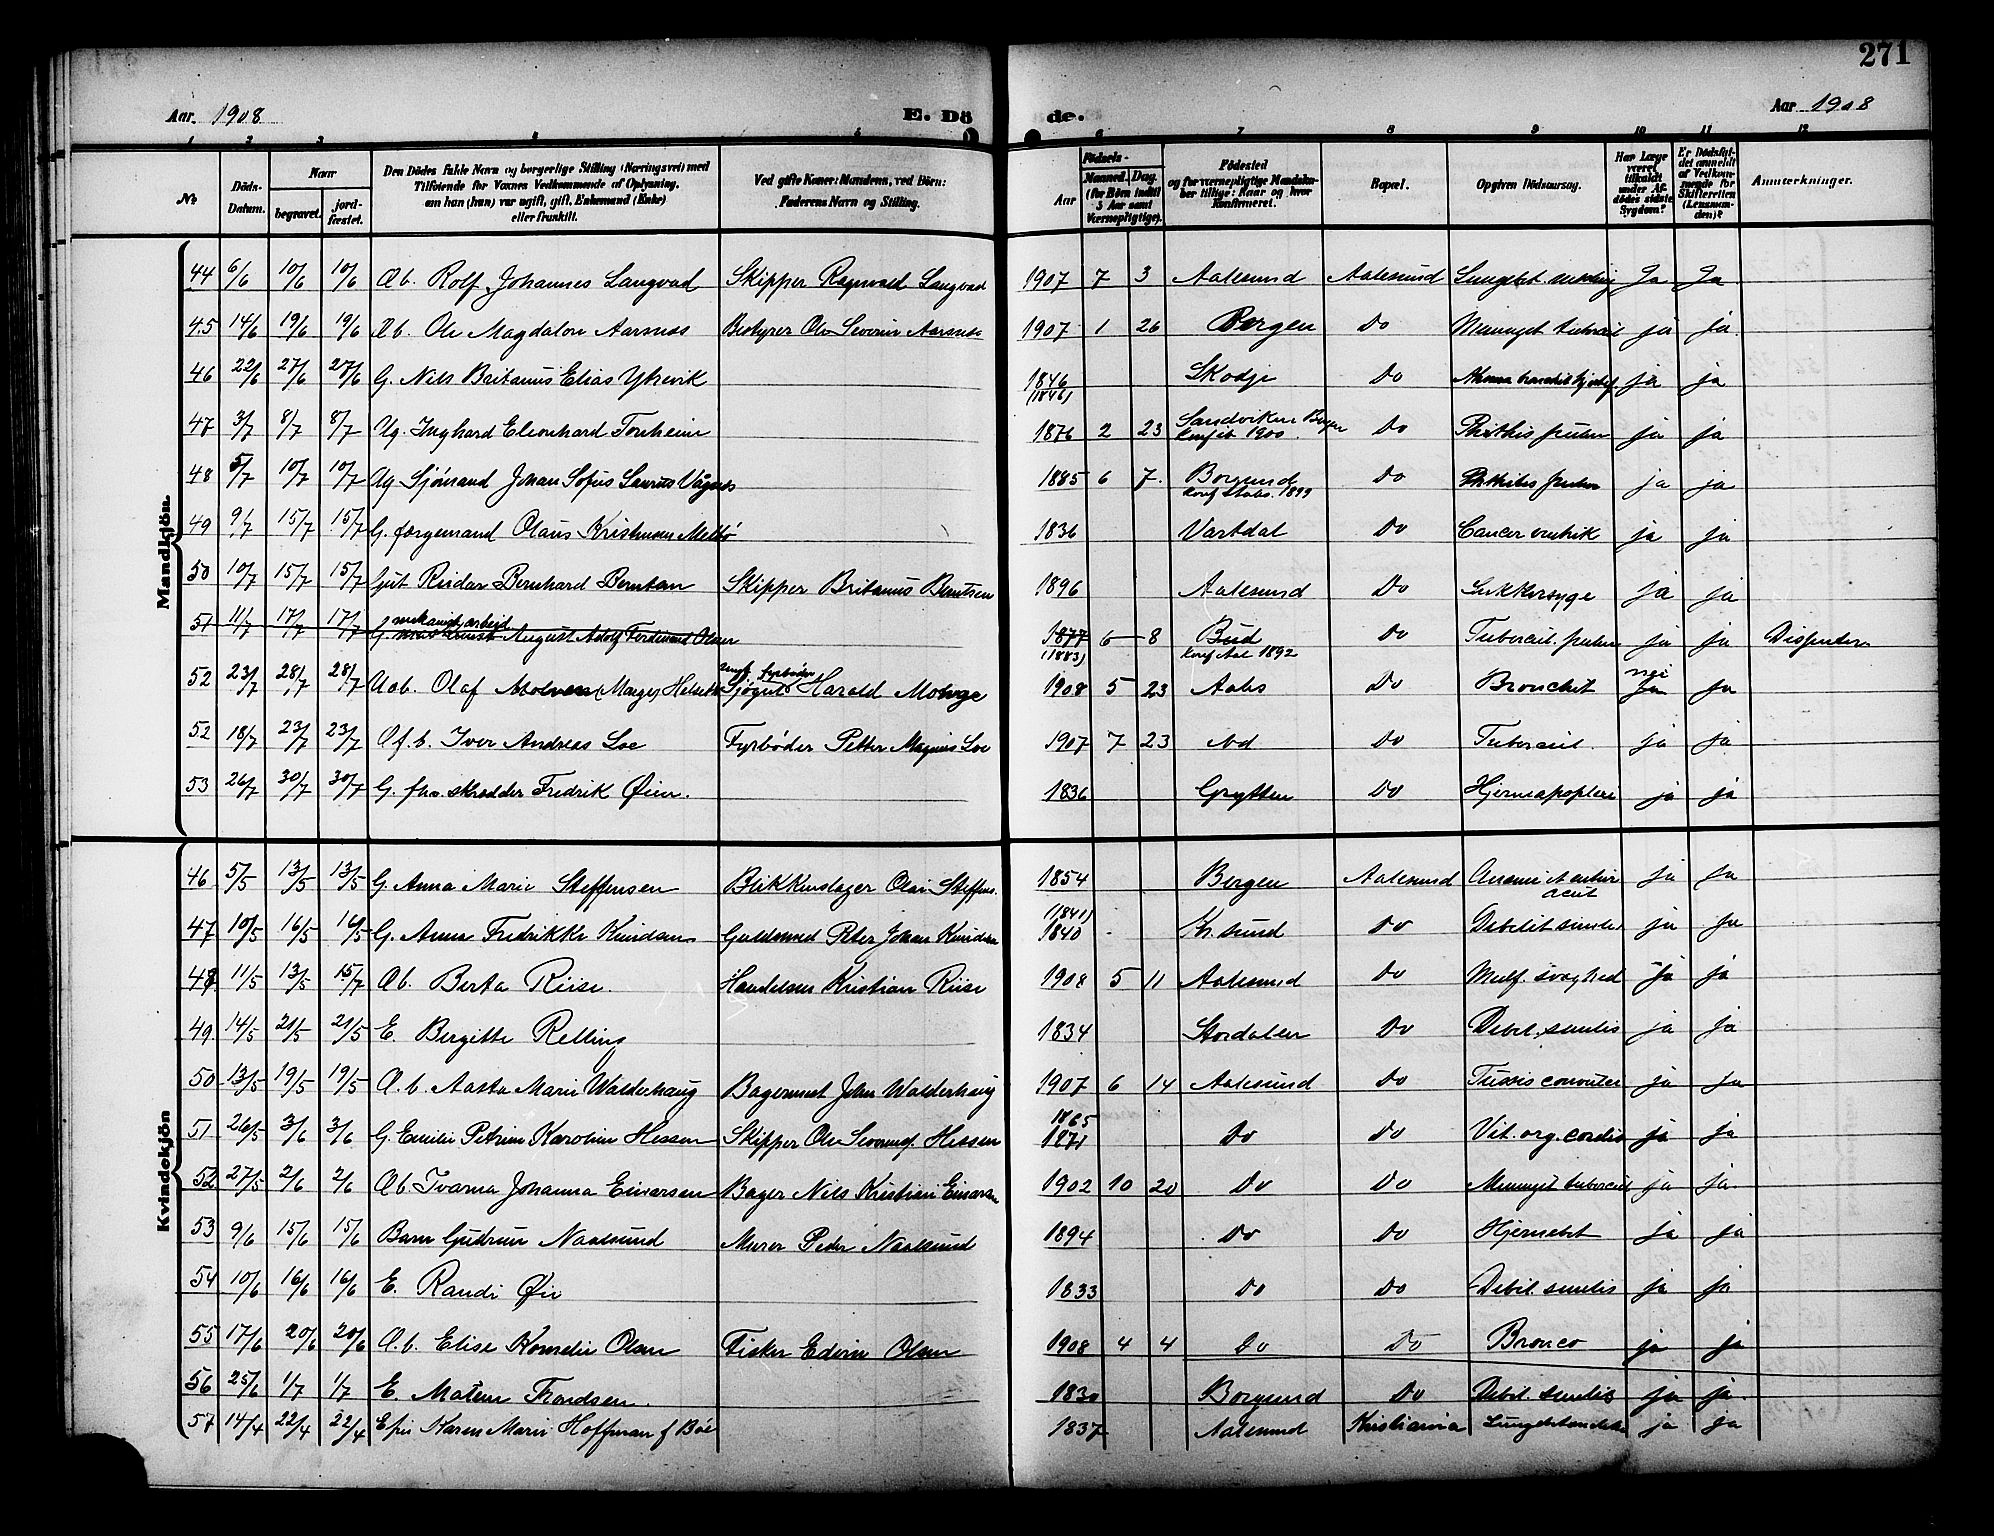 271
Aar 1908 E. Döde. Aar 1908
1 2 3 4 5 6 7 8 9 10 11 12
№
Döds-Datum.
Naar
begravet.
jordfæstet.
Den Dödes fulde Navn og borgerlige Stilling (Næringsvei) med Tilföiende for Voxnes Vedkommende af Oplysning, om han (hun) var ugift, gift, Enkemand (Enke) eller fraskilt.
Ved gifte Koner: Mandens, ved Börn: Faderens Navn og Stilling.
Aar
Födsels-
Maaned. Dag.
(for Börn indtil 5 Aar samt Værnepligtige).
Födested og for værnepligtige Mandskaber tillige: Naar og hvor Konfirmeret.
Bopæl.
Opgiven Dödsaarsag.
Har Læge været tilkaldt under Afdödes sidste Sygdom?
Er Dödsfaldet anmeldt af Vedkommende for Skifteretten (Lensmanden)?
Anmærkninger.
Mandkjön
44 6/6 10/6 10/6 Æb. Rolf Johannes Langvad Skipper Ragnvald Langvad 1907 7 3 Aalesund Aalesund Ja Ja
45 14/6 19/6 19/6 Æb. Ole Magdalon Aarsnes Bestyrer Ole Severin Aarsnes 1907 1 26 Bergen Do ja ja
46 22/6 27/6 27/6 G. Nils Britanus Elias Ytrevik 1846 (1846) Skodje Do ja ja
47 3/7 8/7 8/7 Ug. Inghard Eleonhard Tonheim 1876 2 23 Sandviken Bergen Konf. 1900 Do Phthis pulm ja ja
48 5/7 10/7 10/7 Ug Sjømand Johan Sofus Laurus Vågnes 1885 6 7. Borgund Konf Aales. 1899 Do Phthisis pulm ja ja
49 9/7 15/7 15/7 G. færgemand Olaus Kristensen Meltbø 1836 Vartdal Do Cancer ventrik ja ja
50 10/7 15/7 15/7 Gut Reidar Bernhard Berntsen Skipper Britanus Berntsen 1896 Aalesund Do Sukkersyge ja ja
51 11/7 17/7 17/7 G. mekanisk arbeid August Adolf Ferdinand Olsen 1877 (1883) 6 8 Bud Konf Aal 1892 Do Tubercul. pulm ja ja Dissenter
52 23/7 28/7 28/7 Uæb. Olaf (Marges Helseth) fyrbøder Sjøgut Harald Molvge 1908 5 23 Aales Do Bronchit nei Ja ja
52 18/7 23/7 23/7 Æ.b. Iver Andreas Loe Fyrbøder Petter Magnus Loe 1907 7 23 Do Tubercul. ja ja
53 26/7 30/7 30/7 G. skrædder Fredrik Øien. 1836 Grytten Do Hjerneapoplexi ja ja
Kvindekjön
46 5/5 13/5 13/5 G. Anna Marie Steffensen Blikkenslager Olai Steffens. 1854 Bergen Aalesund ja ja
47 10/5 16/5 16/5 G. Anna Fredrikke Knudsen Guldsmed Peter Johan Knudsen (1841) 1840 Kr.sund Do Debilit senilis ja ja
48 11/5 13/5 15/7 Æb. Berta Riise. Handelsm Kristian Riise 1908 5 11 Aalesund Do Medf. svaghed ja ja
49 14/5 21/5 21/5 E. Birgitte Relling 1834 Stordalen Do Debil. senilis ja ja
50 13/5 19/5 19/5 Æ.b. Aasta Marie Walderhaug Bagermest John Walderhaug 1907 6 14 Aalesund Do Tussis convulsiv ja ja
51 26/5 3/6 3/6 G. Emilie Petrine Karoline Hessen Skipper Ole Hessen 1865 1871 Do Do Vit. org. cordis ja ja
52 27/5 2/6 2/6 Æb Ivarna Johanna Einarsen Bager Nils Kristian Einarsen 1902 10 20 Do Do Meninget tubercul ja ja
53 9/6 15/6 15/6 Barn Gudrun Naalsund Murer Peder Naalsund 1894 Do Do Hjernebet ja ja
54 10/6 16/6 16/6 E. Randi Øie 1833 Do Do Debil. senilis ja ja
55 17/6 20/6 20/6 Æ.b. Elise Kornelie Olsen Fisker Edvin Olsen 1908 4 4 Do Do Bronco ja ja
56 25/6 1/7 1/7 E. Matene Frondsen. 1830 Borgund Do Debil. senilis ja ja
57 14/4 22/4 22/4 Karen Marie Hoffman f Böe 1837 Aalesund Kristiania Lungebetændelse ja ja